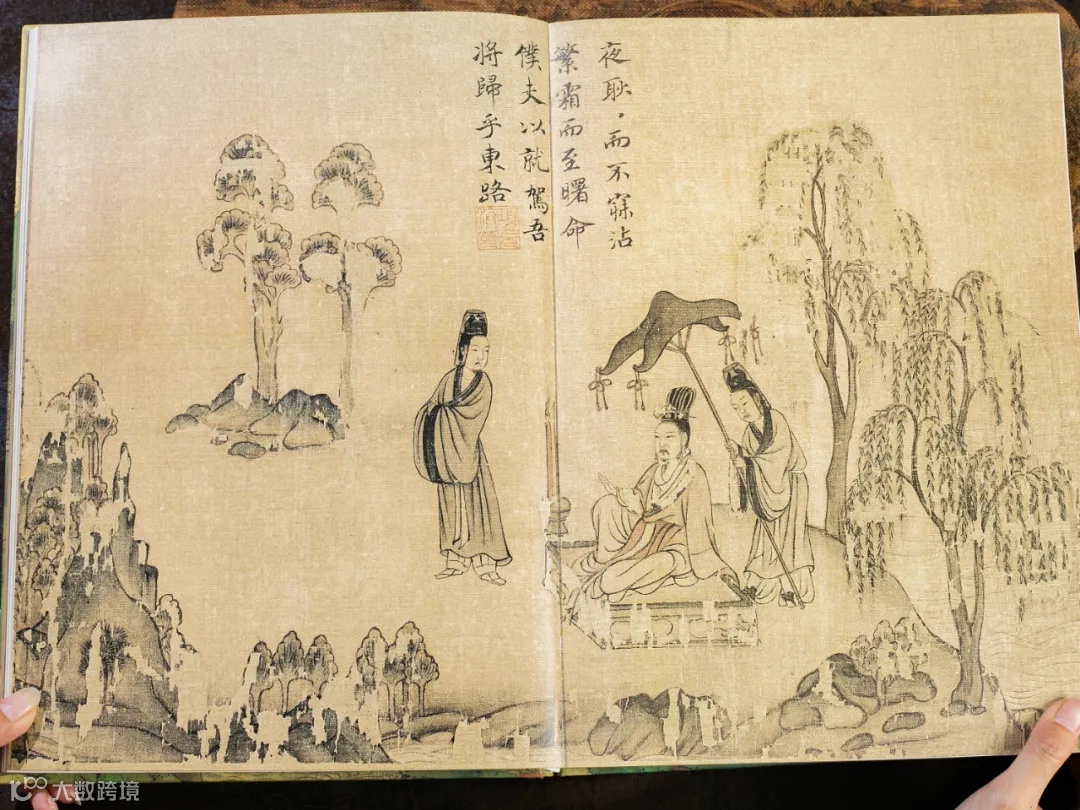 夜耿，而不寐沾
繁霜而至曙命
僕夫以就駕吾
将歸乎東路
大数跨境